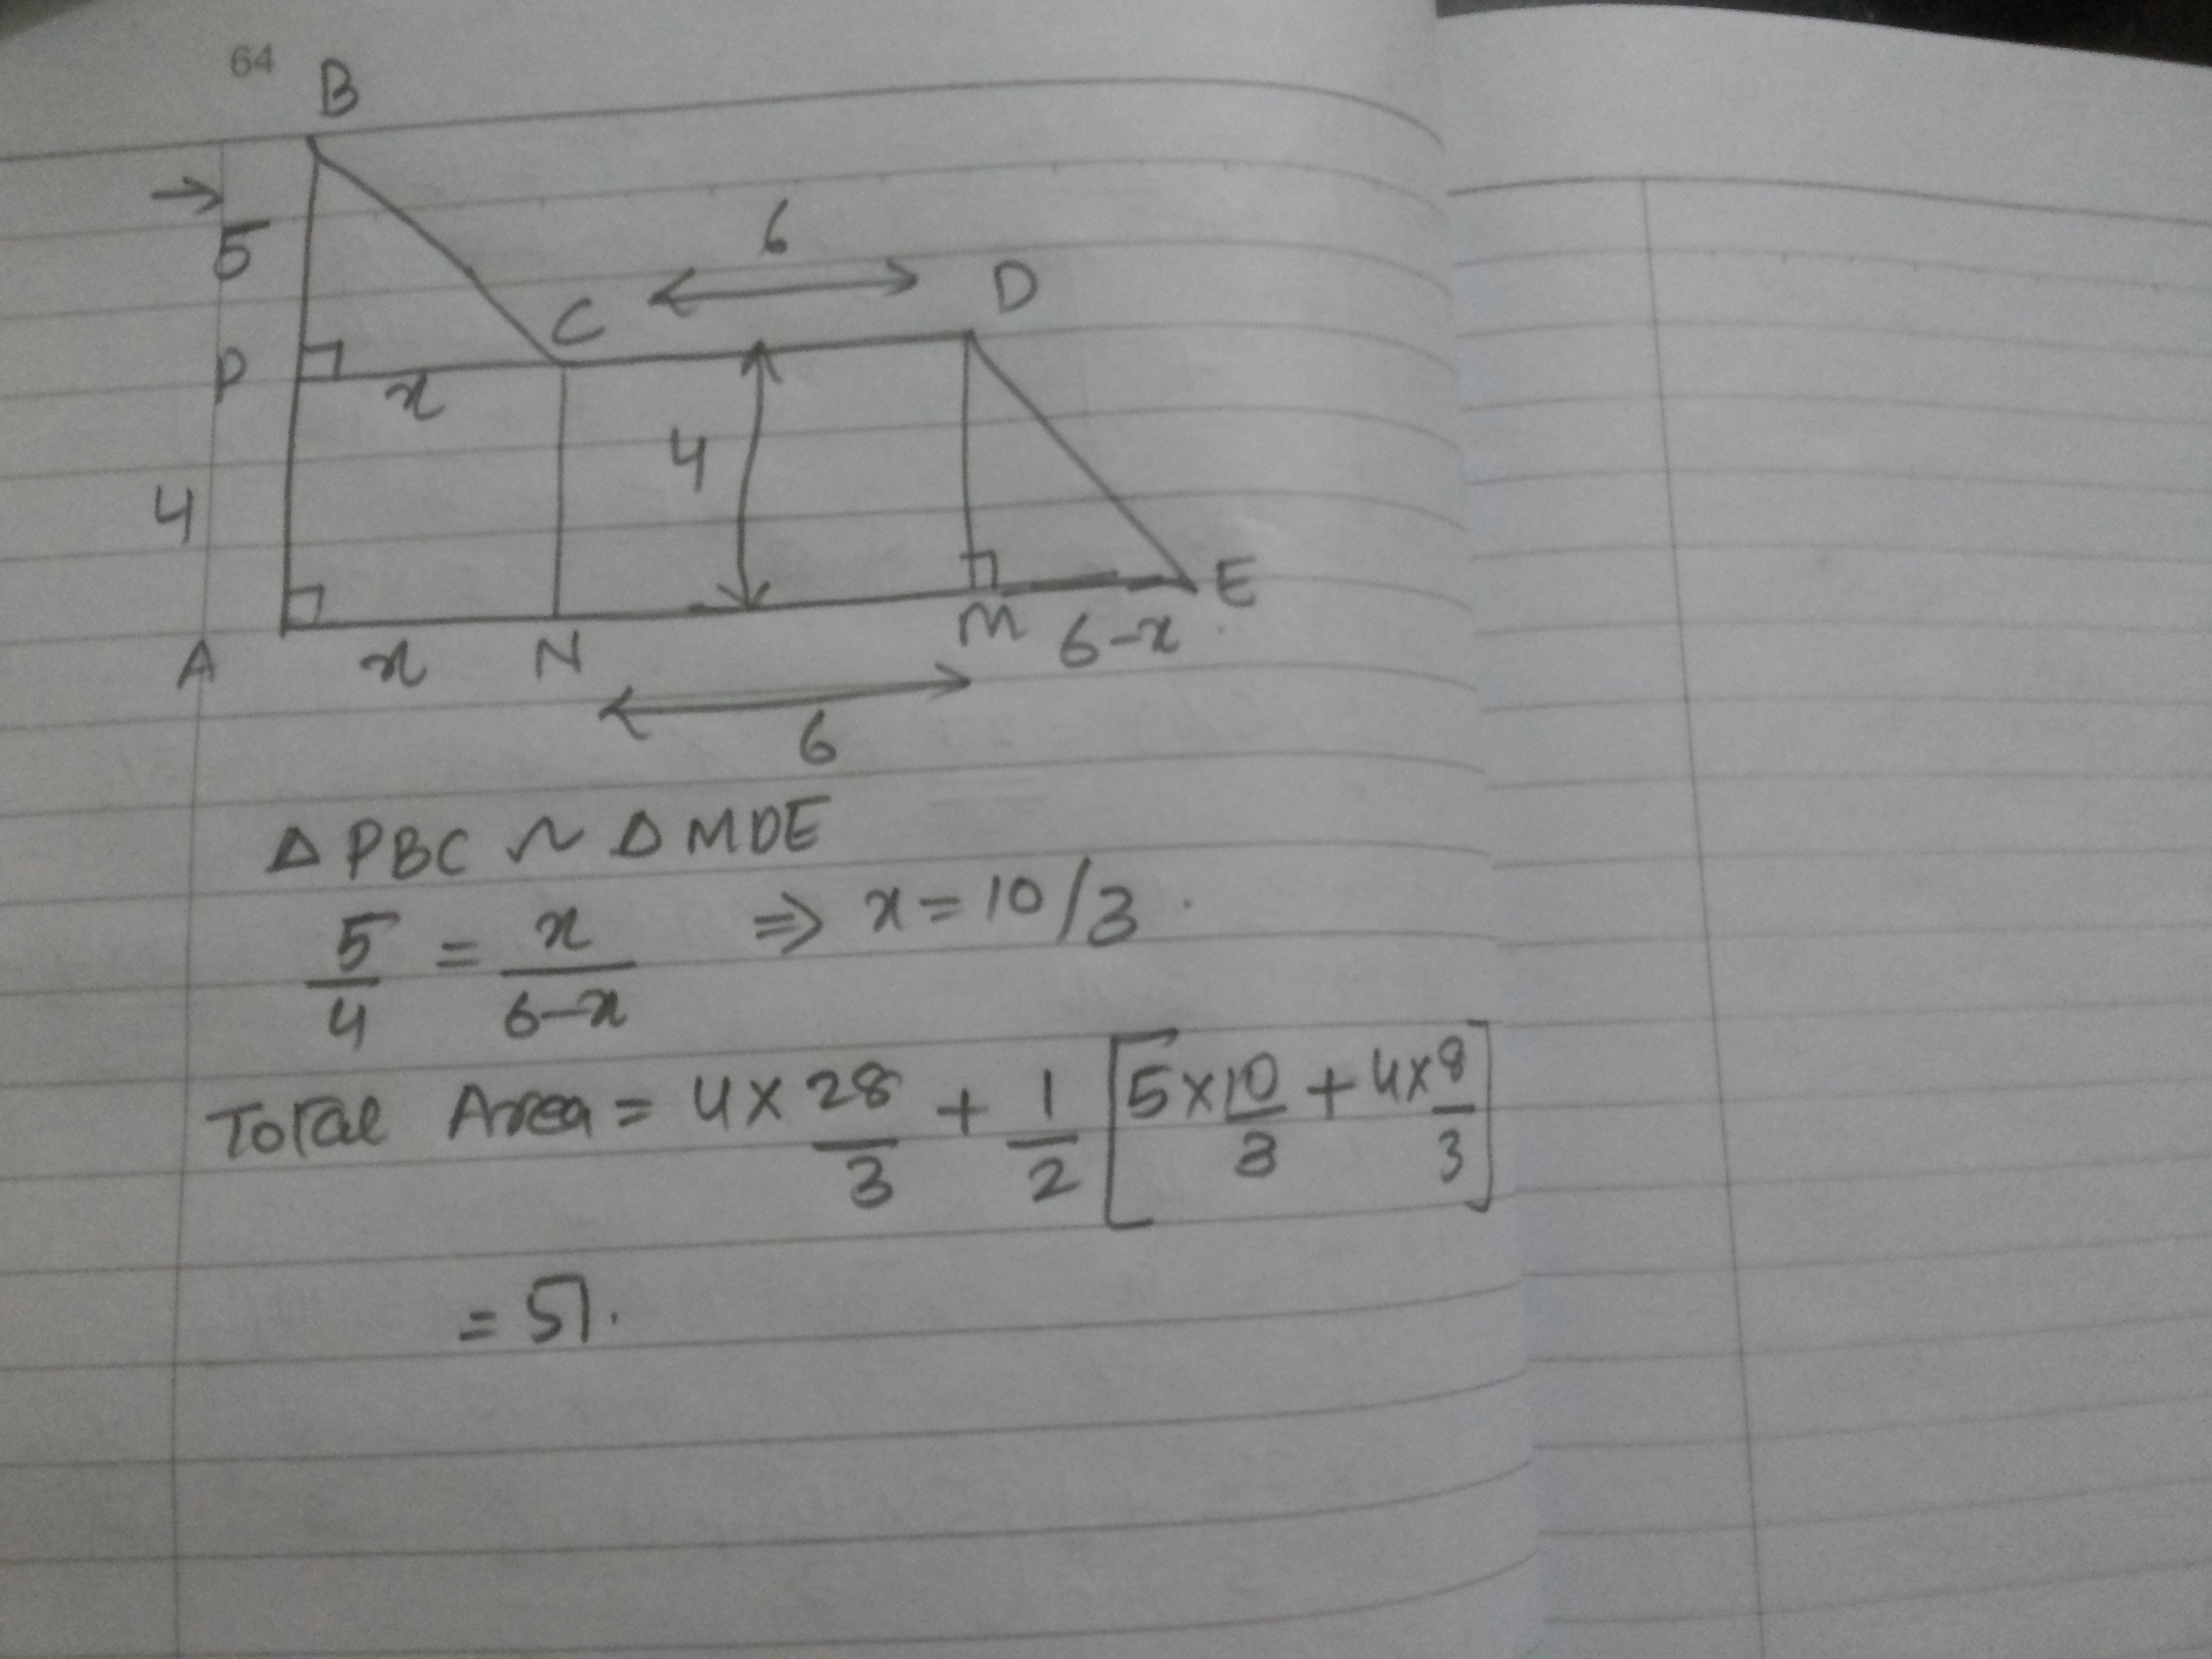 64
B
5
6
C
D
P
x
4
4
E
A
x
N
M
6-x
6
Δ PBC ~ Δ MDE
5/4 = x/(6-x) ⇒ x = 10/3.
Total Area = 4 × 28/3 + 1/2 [5×10/3 + 4×8/3]
= 51.